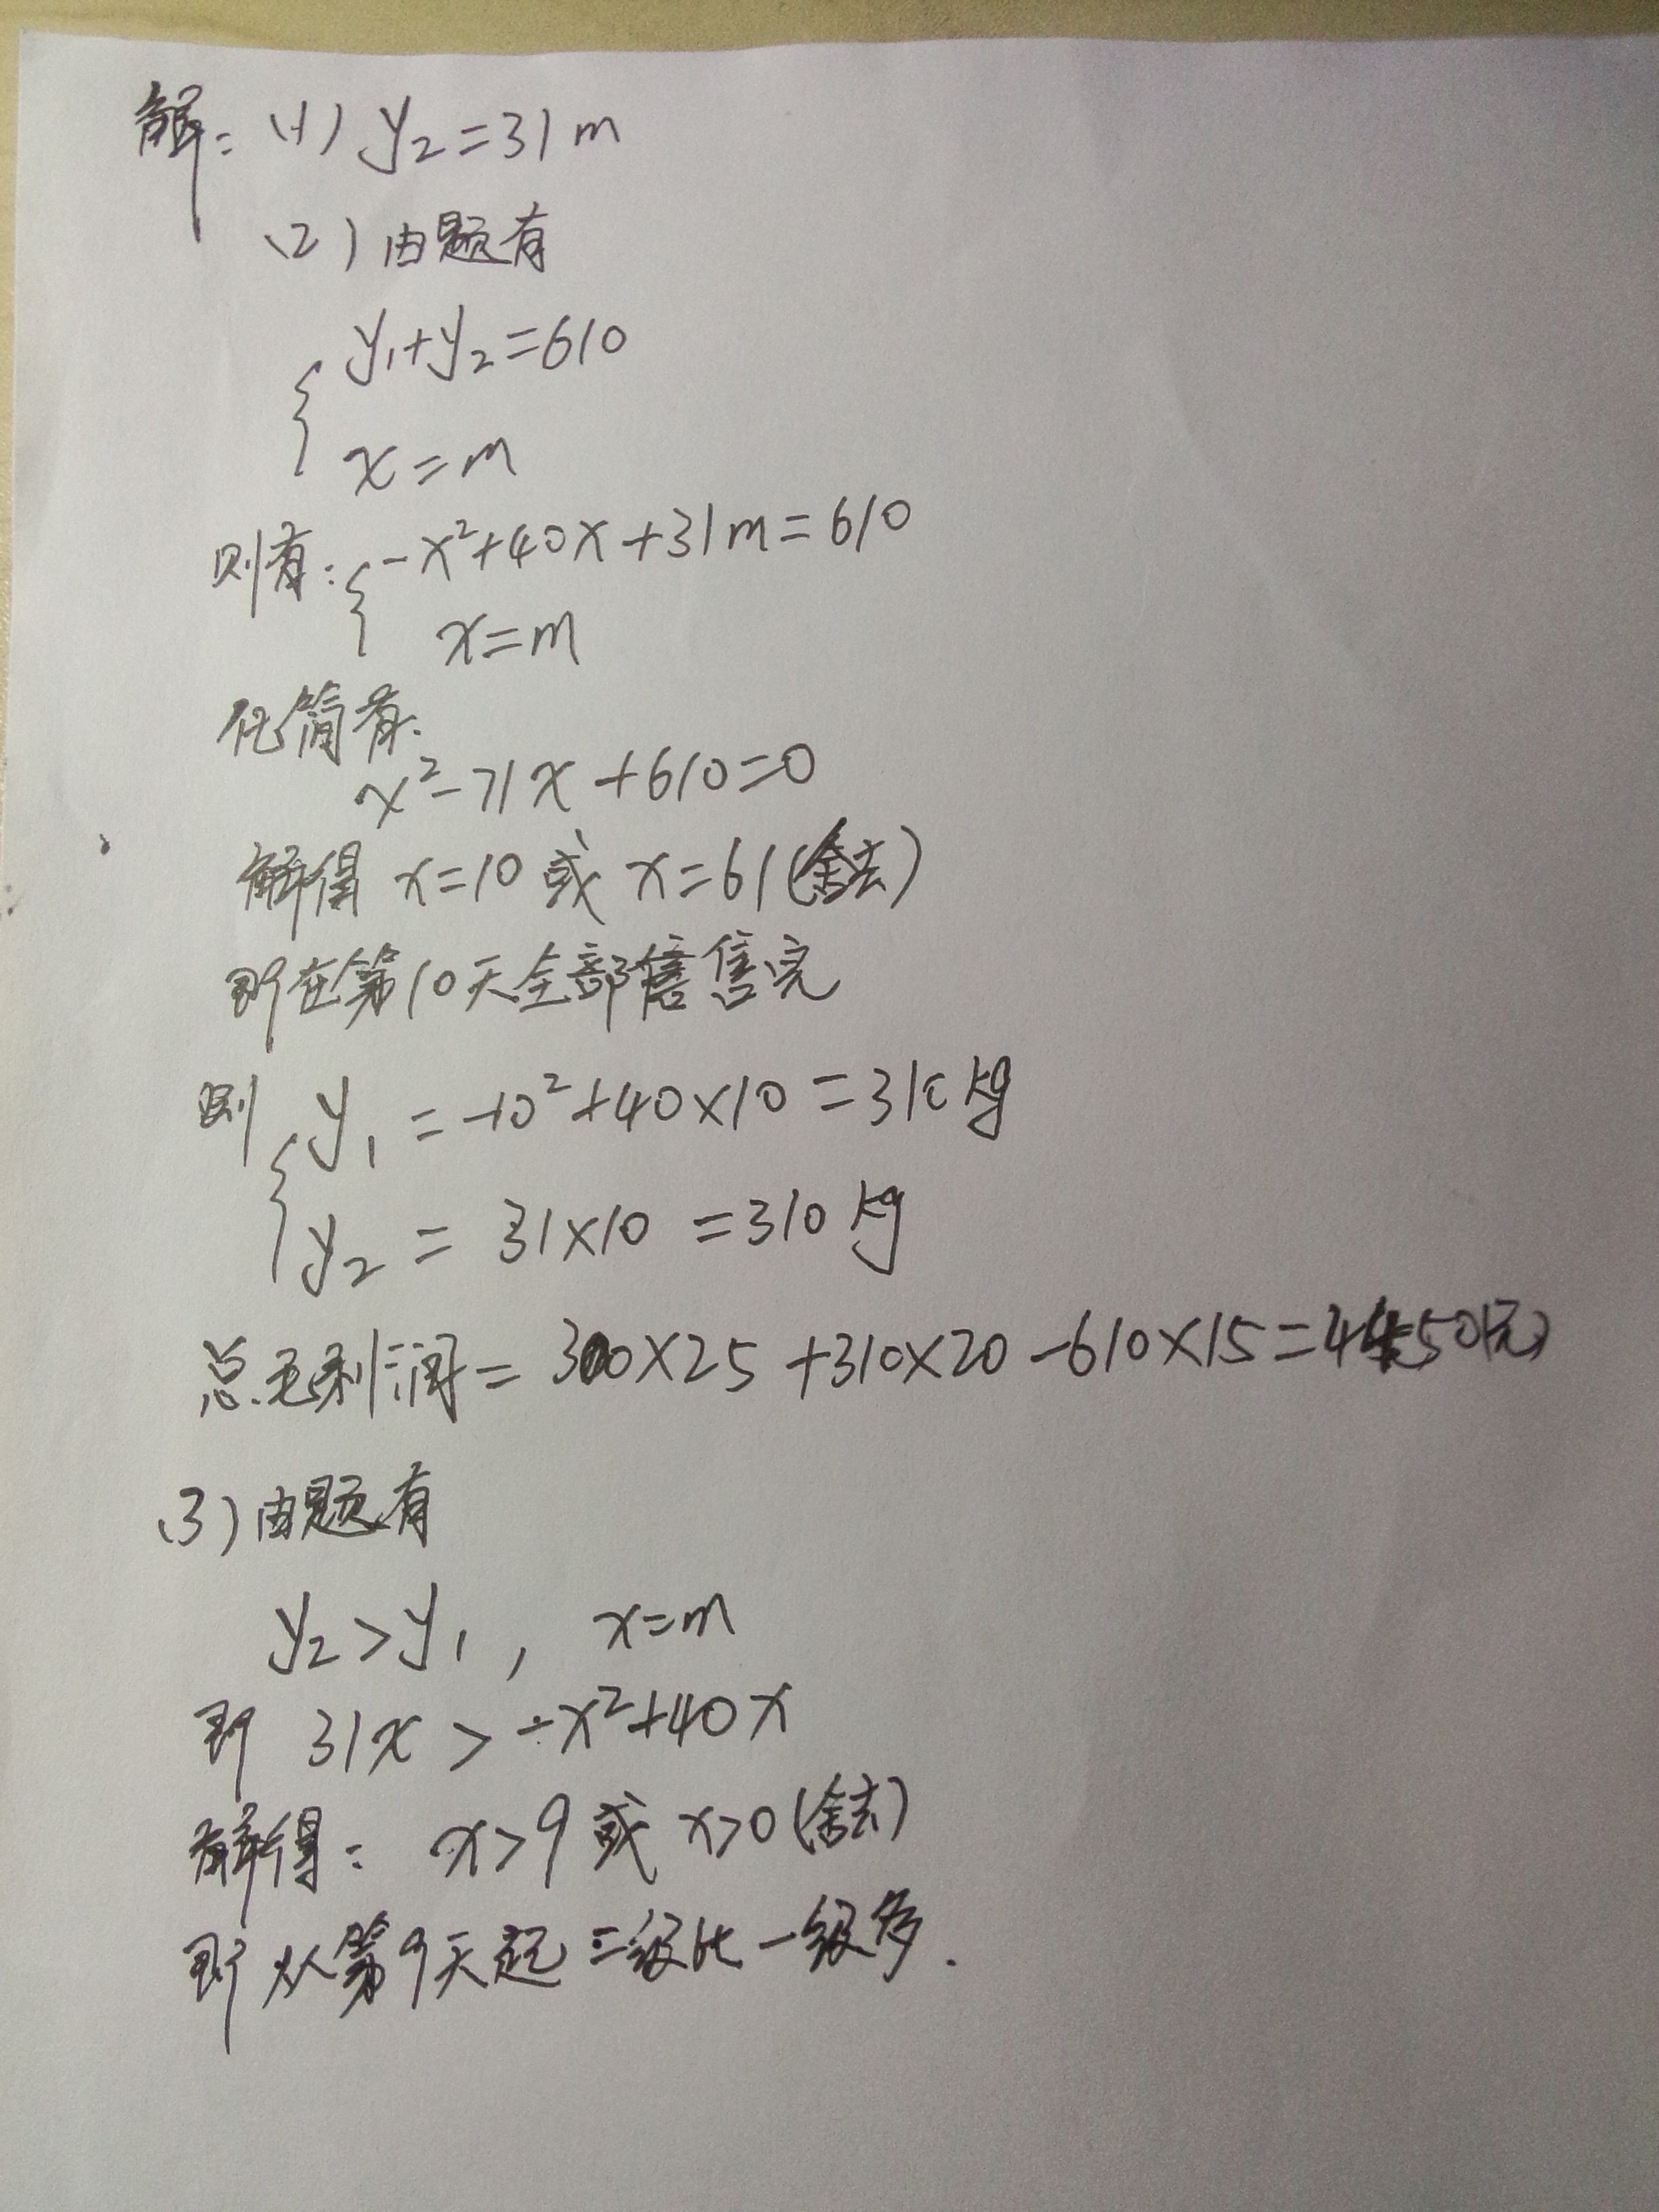 解：(1) y₂=31m
(2) 由题有
y₁+y₂=610
x=m
则有：-x²+40x+31m=610
x=m
化简有.
x²-71x+610=0
解得 x=10 或 x=61(舍去)
即在第10天全部售完
则 y₁=-10²+40×10=310kg
y₂=31×10=310kg
总毛利润=300×25+310×20-610×15=4550(元)
(3) 由题有
y₂>y₁, x=m
即 31x>-x²+40x
解得：x>9 或 x>0(舍去)
即从第9天起二级比一级多.